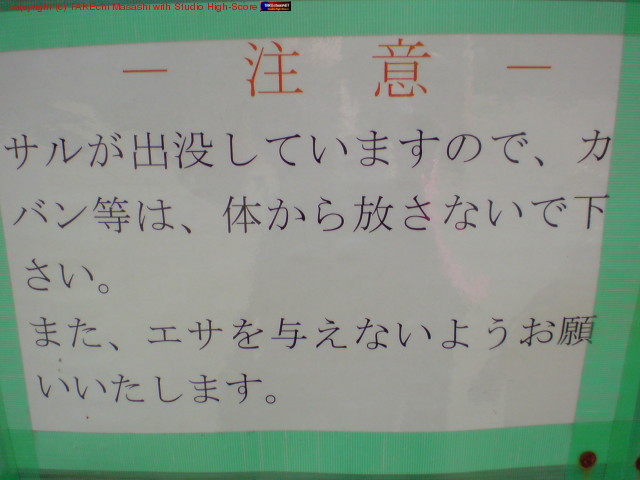 copyright (c) TAKEchi Masashi with Studio High-Score
― 注 意 ―
サルが出没していますので、カ
バン等は、体から放さないで下
さい。
また、エサを与えないようお願
いいたします。